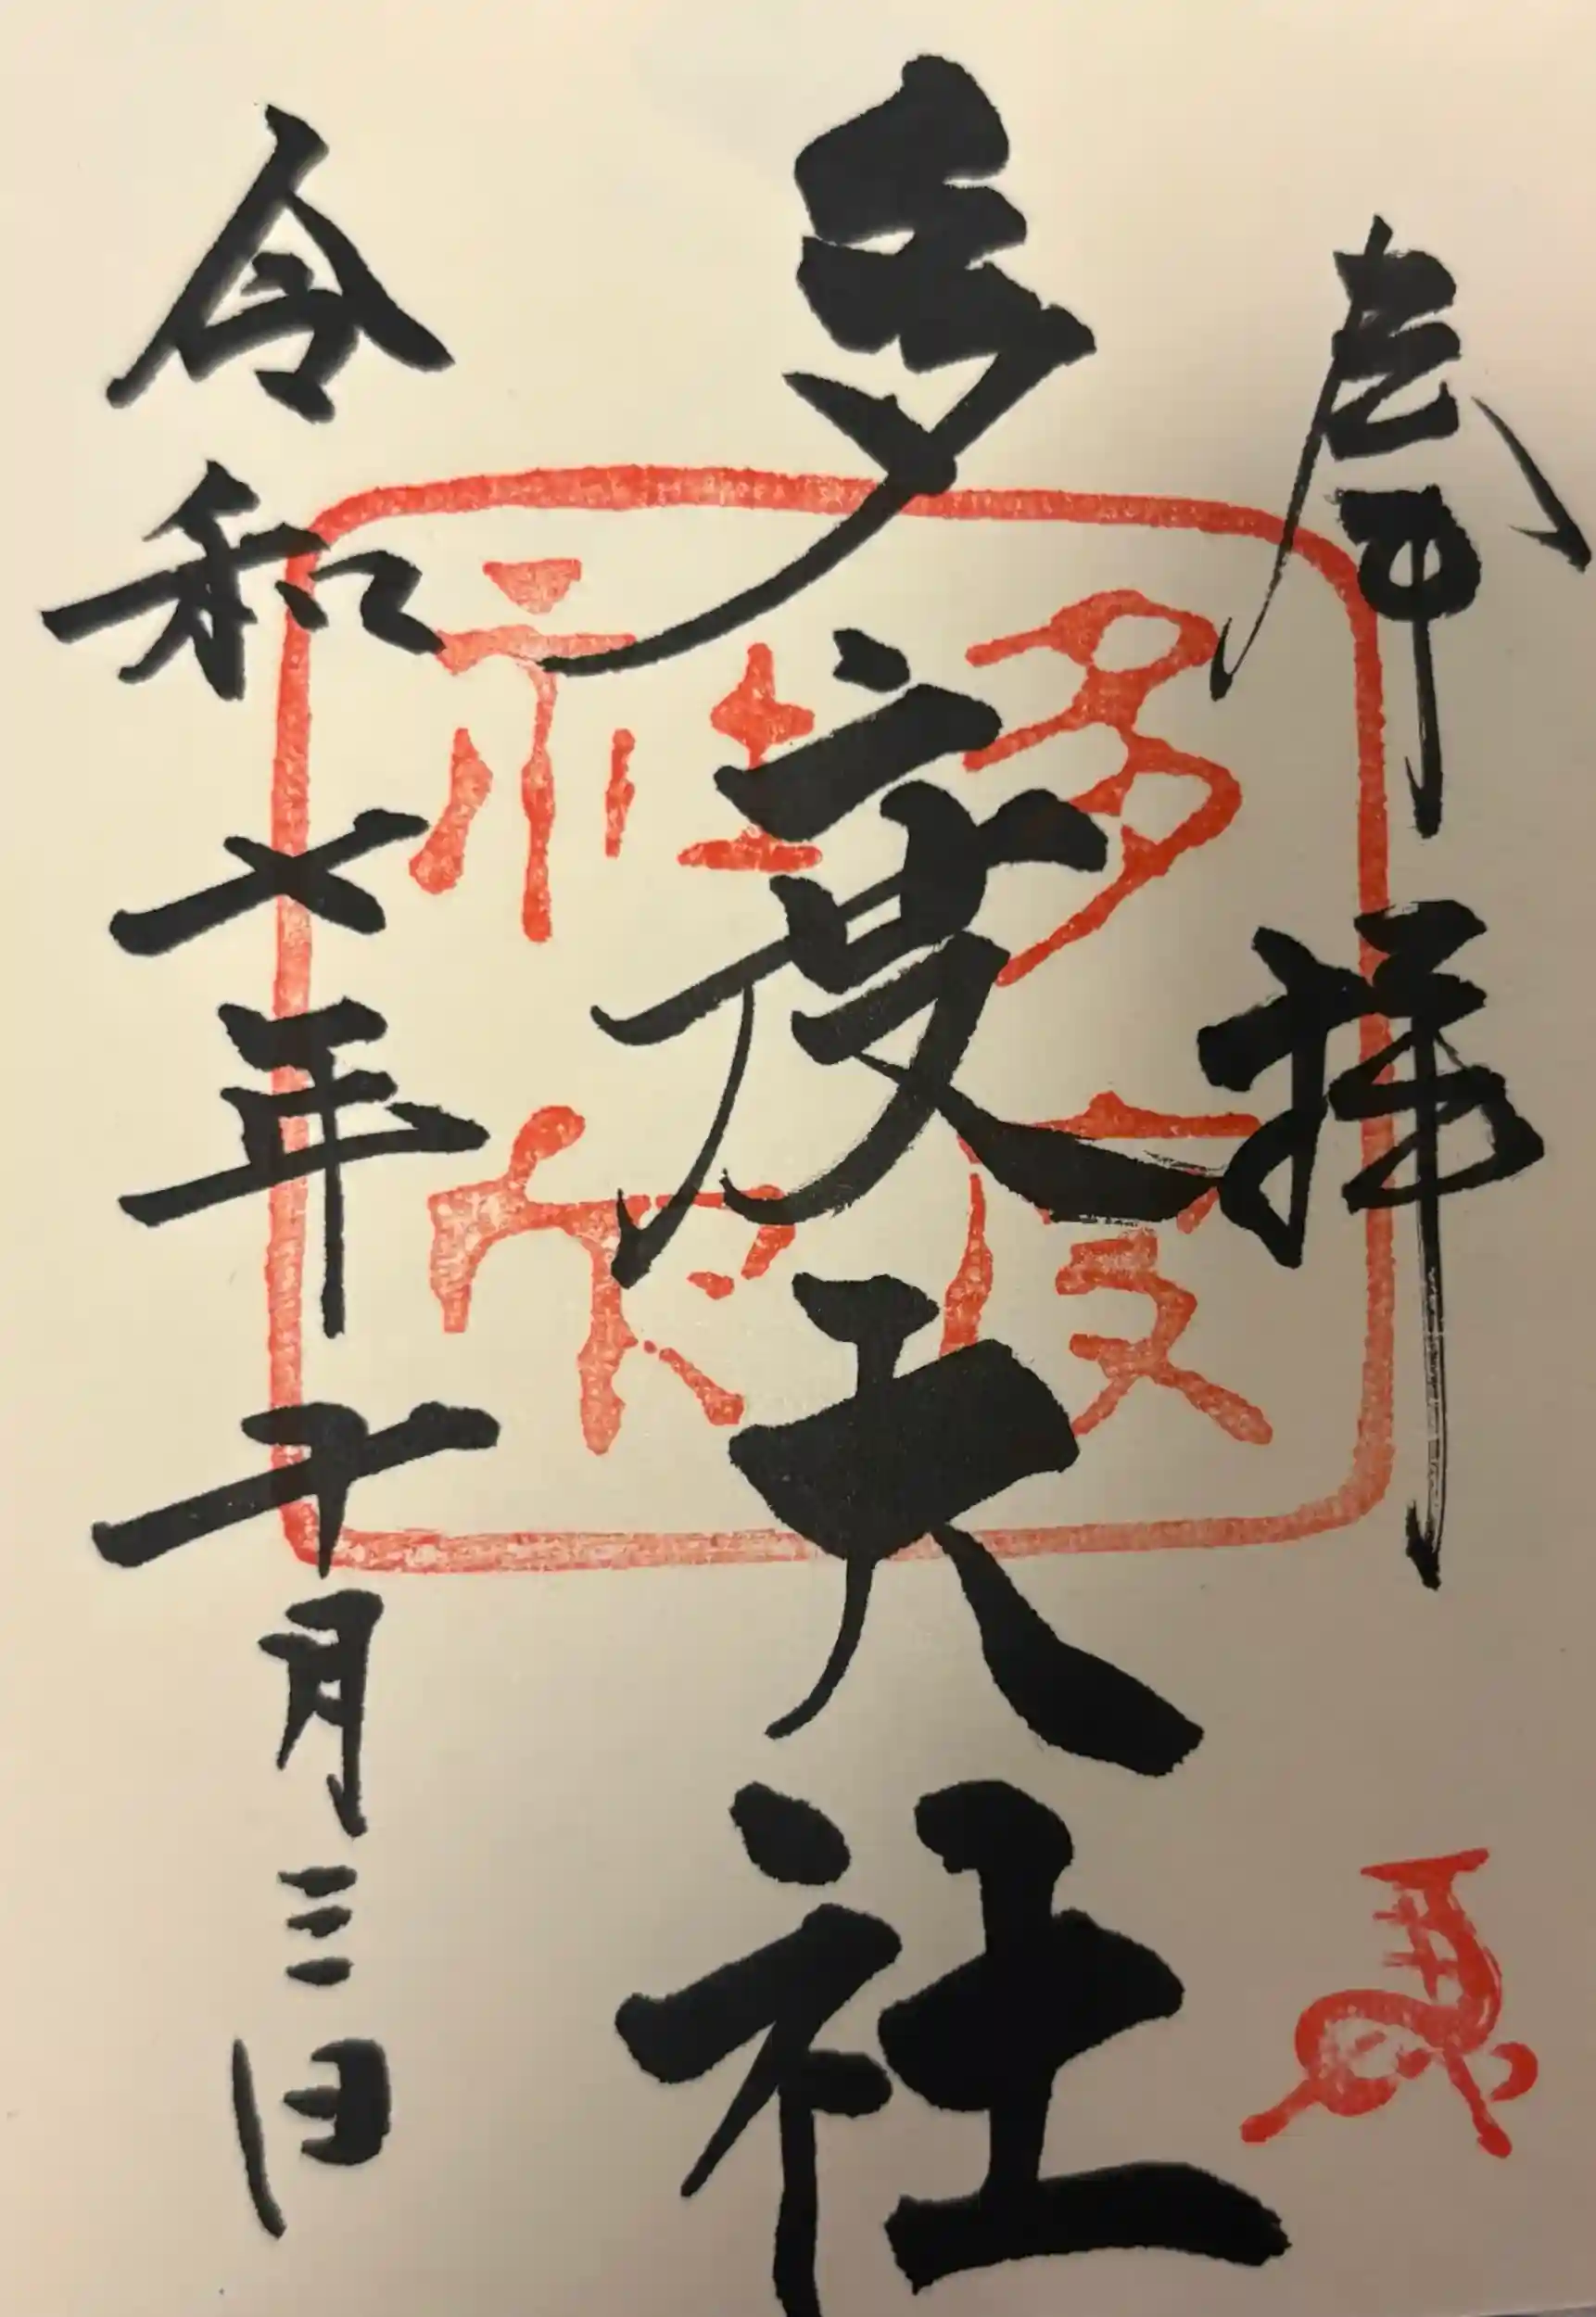 奉拝
多度大社
多度社印
令和七年十月三日